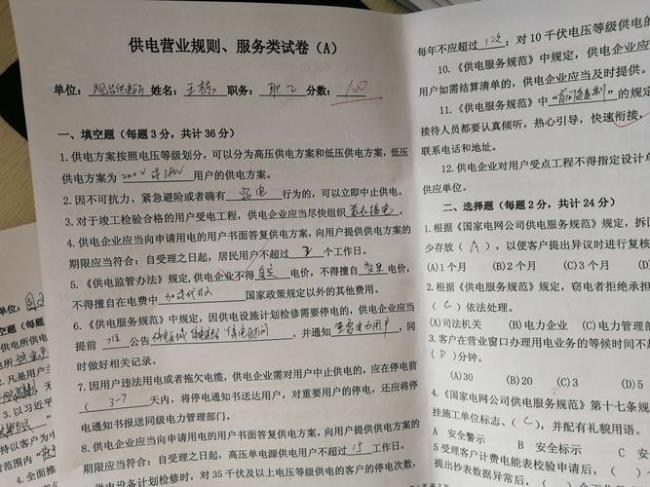 供电营业规则、服务类试卷（A）
单位： 姓名： 王 职务： 职工 分数：100
一、填空题（每题3分，共计36分）
1.供电方案按照电压等级划分，可以分为高压供电方案和低压供电方案，低压
供电方案为 用户的供电方案。
2.因不可抗力、紧急避险或者确有 窃电 行为的，可以立即中止供电。
3.对于竣工检验合格的用户受电工程，供电企业应当尽快组织 装表接电 。
4.供电企业应当向申请用电的用户书面答复供电方案，向用户提供供电方案的
期限应当符合：自受理之日起，居民用户不超过 3 个工作日。
5.《供电监管办法》规定，供电企业不得 自定 电价，不得擅自 变更 电价，
不得擅自在电费中 加收代收 国家政策规定以外的其他费用。
6.《供电服务规范》中规定，因供电设施计划检修需要停电的，供电企业应当
提前 7日 公告 停电区域 停电线路 停电时间 ，并通知 重要电力用户 ，同
时做好相关记录。
7.因用户违法用电或者拖欠电缆，供电企业需对用户中止供电的，应在停电前
（ 3-7 天内，将停电通知书送达用户，对重要用户的停电，还应将停
电通知书报送同级电力管理部门。
8.供电企业应当向申请用电的用户书面答复供电方案，向用户提供供电方案的
期限应当符合：自受理之日起，高压单电源供电用户不超过 15 工作日。
供电设备计划检修时，对35千伏及以上电压等级供电的客户的停电次数，
每年不应超过 1次 ；对10千伏电压等级供电的
10.《供电服务规范》中规定，供电企业应
用户如需结算清单的，供电企业应当及时提供。
11.《供电服务规范》中“首问负责制”的规定
接待人员都要认真倾听，热心引导，快速衔接，
联系电话和地址。
12.供电企业对用户受点工程不得指定设计单
供应单位。
二、选择题（每题2分，共计24分）
1.根据《国家电网公司供电服务规范》规定，拆回
少存放（ A ），以便客户提出异议时进行复核
(A)1个月 (B)2个月 (C)3个月 (D
2.根据《供电服务规范》规定，窃电者拒绝承担
（ C ）依法处理。
(A)司法机关 (B)电力企业 (C)电力管理部
3.客户在营业窗口办理用电业务的等候时间不超
（ D ）分钟。
(A)30 (B)20 (C)3 (D)5
4.《国家电网公司供电服务规范》第十七条规
挂施工单位标志、（ C ），并配有礼貌用语。
A 安全警示 B 安全标示 C
5受理客户计费电能表校验申请后，（
提出抄表数据异常后，（